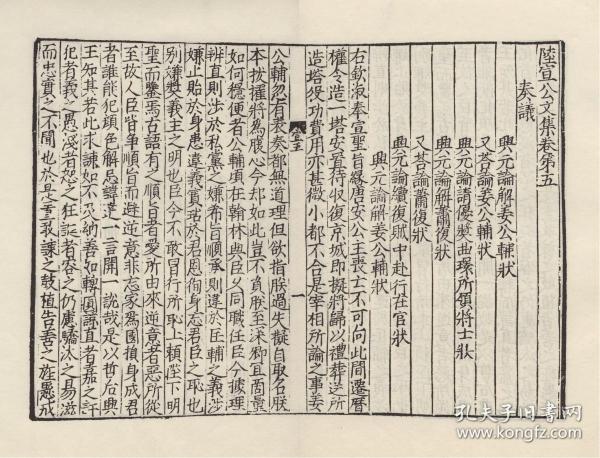 陸宣公文集卷第五
奏議
興元論解姜公輔狀
又荅論姜公輔狀
興元論請優奬曲環所領將士狀
興元論解蕭復狀
又荅論蕭復狀
興元論續從賊中赴行在官狀
興元論解姜公輔狀
右欽溆奉宣聖旨緣唐安公主喪亡不可向此間遷厝
權令造一塔安置待收復京城即擬將歸以禮葬送所
造塔役功費用亦甚微小都不合是宰相所論之事姜
公輔忽有表奏都無道理但欲指朕過失擬自取名朕
本拔擢將爲腹心今却如此豈不負朕至深卿宜商量
如何穩便者公輔頃在翰林與臣久同職任臣今據理
辨直則涉於私黨之嫌希旨順承則違於匡輔之義涉
嫌止貽於身患違義實玷於君恩徇身忘君臣之恥也
别嫌奬義主之明也臣今不敢冒行所恥上賴陛下明
聖而鑒焉古語有之順旨者愛所由來逆意者惡所從
至故人臣皆爭順旨而避逆意非忘家爲國捐身成君
者誰能犯顔色觧忌諱建一言開一說哉是以哲后興
王知其若此求諫如不及納善如轉圜諒直者嘉之訐
犯者義之愚淺者恕之狂誕者容之仍慮驕汰之易滋
而忠實之不聞也於是置敢諫之鼓植告善之旌懸戒
一
孔夫子旧书网
www.kongfz.com